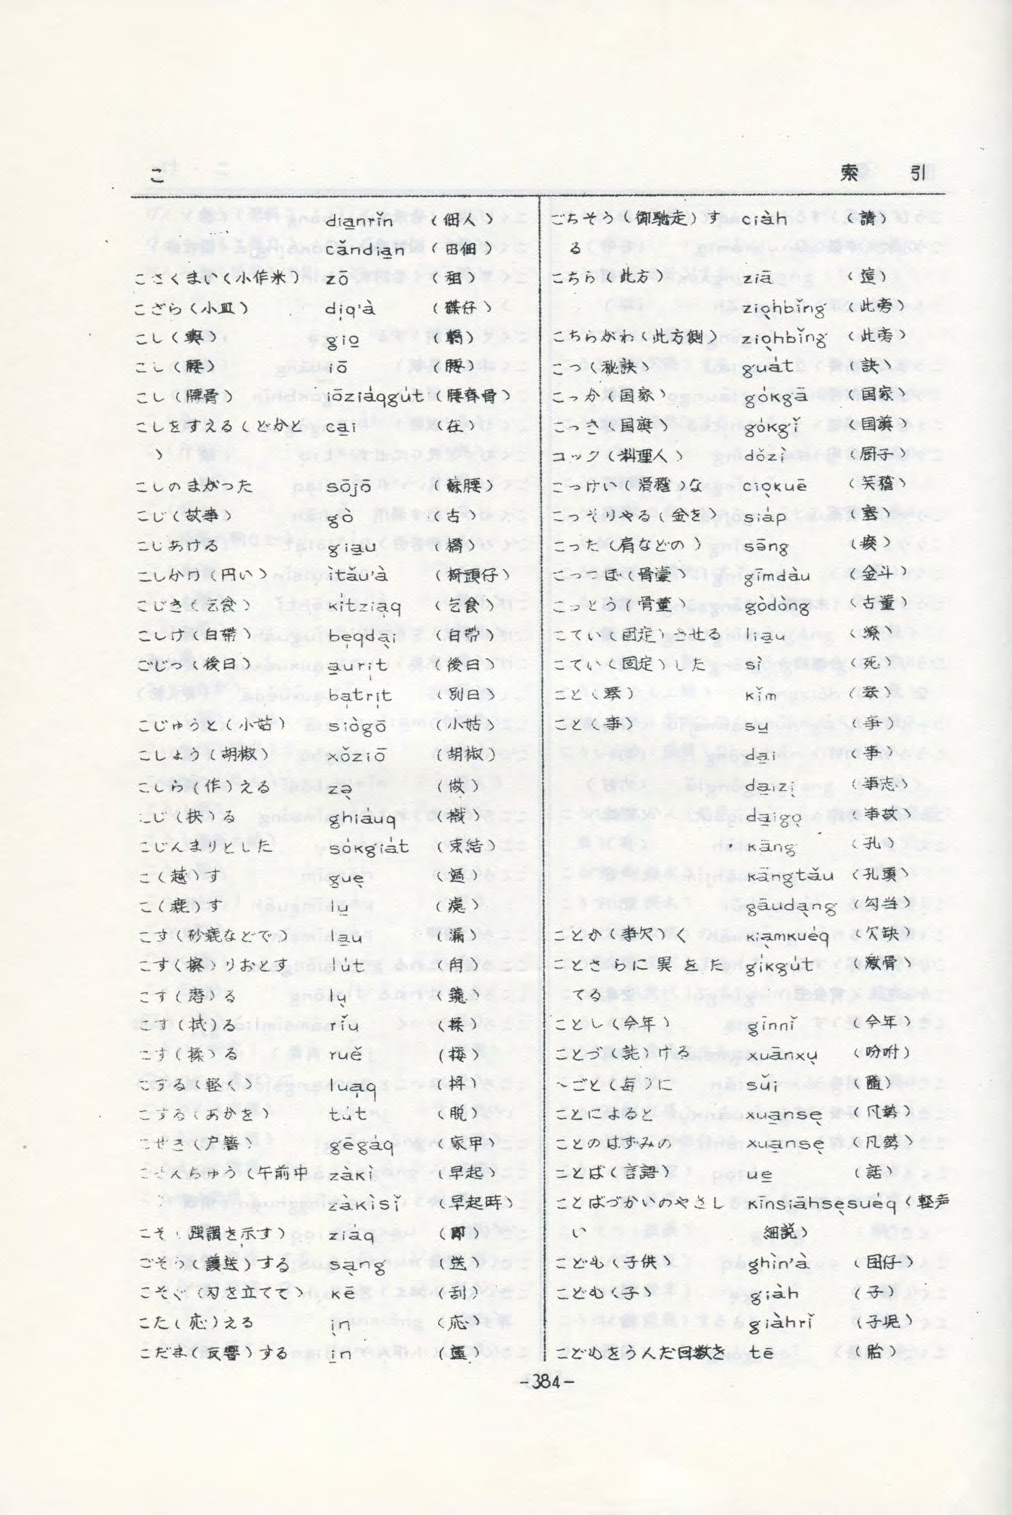 こ
索　引
dia̱nrǐn （佃人）
cǎndia̱n （田佃）
こさくまい（小作米） zō （租）
こざら（小皿） di̍q'à （碟仔）
こし（輿） gio̱ （轎）
こし（腰） iō （腰）
こし（腰骨） iōziáqgu̍t （腰脊骨）
こしをすえる（どかと ca̱i （在）
）
こしのまがった sōjō （蘇腰）
こじ（故事） gò （古）
こじあける gia̱u （撟）
こしかけ（円い） ìtǎu'à （椅頭仔）
こじき（乞食） kìtzia̍q （乞食）
こしけ（白帯） be̍qda̱i （白帯）
ごじつ（後日） a̱uri̍t （後日）
ba̍tri̍t （別日）
こじゅうと（小姑） siògō （小姑）
こしょう（胡椒） xǒziō （胡椒）
こしら（作）える zə̱ （做）
こじ（抉）る ghiáuq
こじんまりとした sókgiát （束結）
こ（越）す gue̱ （過）
こ（漉）す lu̱
こす（砂糖などで） la̱u （漏）
こす（擦）りおとす lút
こす（擦）る lu̱
こす（拭）る riǔ （揉）
こす（揉）る ruě （挼）
こする（軽く） lua̍q （捋）
こする（あかを） tút （脱）
こせき（戸籍） gēgáq （家甲）
ごぜんちゅう（午前中 zàkì （早起）
） zàkìsǐ （早起時）
こそ（強調を示す） ziáq （即）
ごそう（護送）する sa̱ng （送）
こそぐ（刃を立てて） kē （刮）
こた（応）える ìn （応）
こだま（反響）する i̱n
ごちそう（御馳走）す ciàh （請）
る
こちら（此方） ziā （這）
zio̍hbǐng （此旁）
こちらがわ（此方側） zio̍hbǐng （此旁）
こつ（秘訣） guát （訣）
こっか（国家） gókgā （国家）
こっき（国旗） gókgǐ （国旗）
コック（料理人） dǒzì （厨子）
こっけい（滑稽）な ciòkuē （笑稽）
こっそりやる（金を） siáp
こった（肩などの） səng （痠）
こつつぼ（骨壷） gīmdàu （金斗）
こっとう（骨董） gòdòng （古董）
こてい（固定）させる lia̱u
こてい（固定）した sì （死）
こと（琴） kǐm
こと（事） su̱ （事）
da̱i （事）
da̱izi （事志）
da̱igo （事故）
kāng （孔）
kāngtǎu （孔頭）
gāudàng （勾当）
ことか（事欠）く kiàmkuéq （欠缺）
ことさらに異をた gíkgút （激骨）
てる
ことし（今年） gīnnǐ （今年）
ことづ（託）ける xuānxu̱ （吩咐）
～ごと（毎）に sǔi （隨）
ことによると xua̱nse̱ （凡勢）
ことのはずみの xua̱nse̱ （凡勢）
ことば（言語） ue̱ （話）
ことばづかいのやさし kīnsiāhse̱suéq （軽声
い 細説）
こども（子供） ghìn'à （囝仔）
こども（子） giàh （子）
giàhrǐ （子児）
こどもをうんだ回数を tē （胎）
-384-